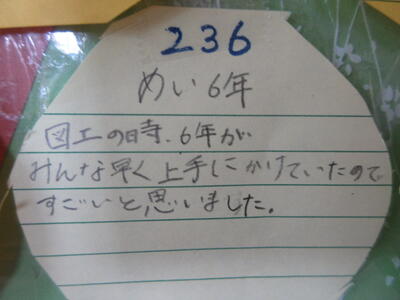 236
めい6年
図工の時、6年が
みんな早く上手にかけていたので
すごいと思いました。